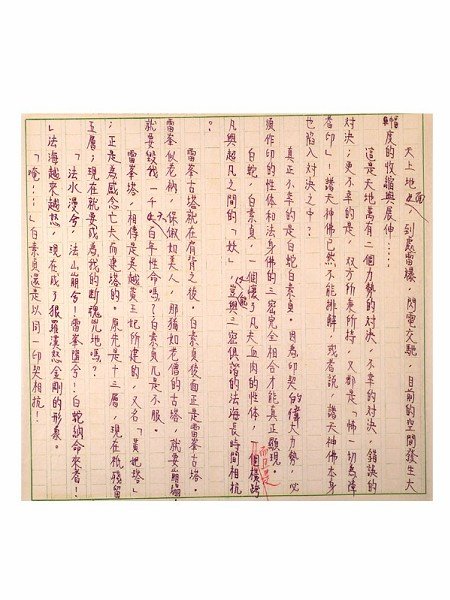 天上地面，到處雷標，閃電交馳，目前的空間發生大
幅度的收縮與展伸……
這是天地萬有二個力勢的對決，不幸的對決，錯誤的
對決；更不幸的是，双方所秉持，又都是「怖一切為障
者印」！諸天神佛已然不能排解，或者說，諸天神佛本身
也陷入對決之中？
真正不幸的是白蛇白素貞。因為印契的偉大力勢，必
須作印的性体和法身佛的三密完全相合才能真正顯現。
白蛇，白素貞，一個懷了凡夫血肉的性体，而且是一個橫跨
凡與超凡之間的「妖」，豈能與三密俱諧的法海長時間相抗
？
雷峯古塔就在肩背之後。白素貞後面正是雷峯古塔。
雷峯似老衲，保俶如美人。那猶如老僧的古塔，就要崩塌，
就要毀我一千七百年性命嗎？白素貞凡是不服。
雷峯塔，相傳是吳越黃王妃所建的，又名「黃妃塔」
；正是為感念亡夫而建塔的。原先是十三層，現在祇殘留
五層；現在就要成為我的斷魂咒地嗎？
「法水漫兮，法山崩兮！雷峯墮兮！白蛇納命來者！
」法海越來越怒，現在成了狠羅漢怒金剛的形象。
「唵！……」白素貞還是以同一印契相抗！